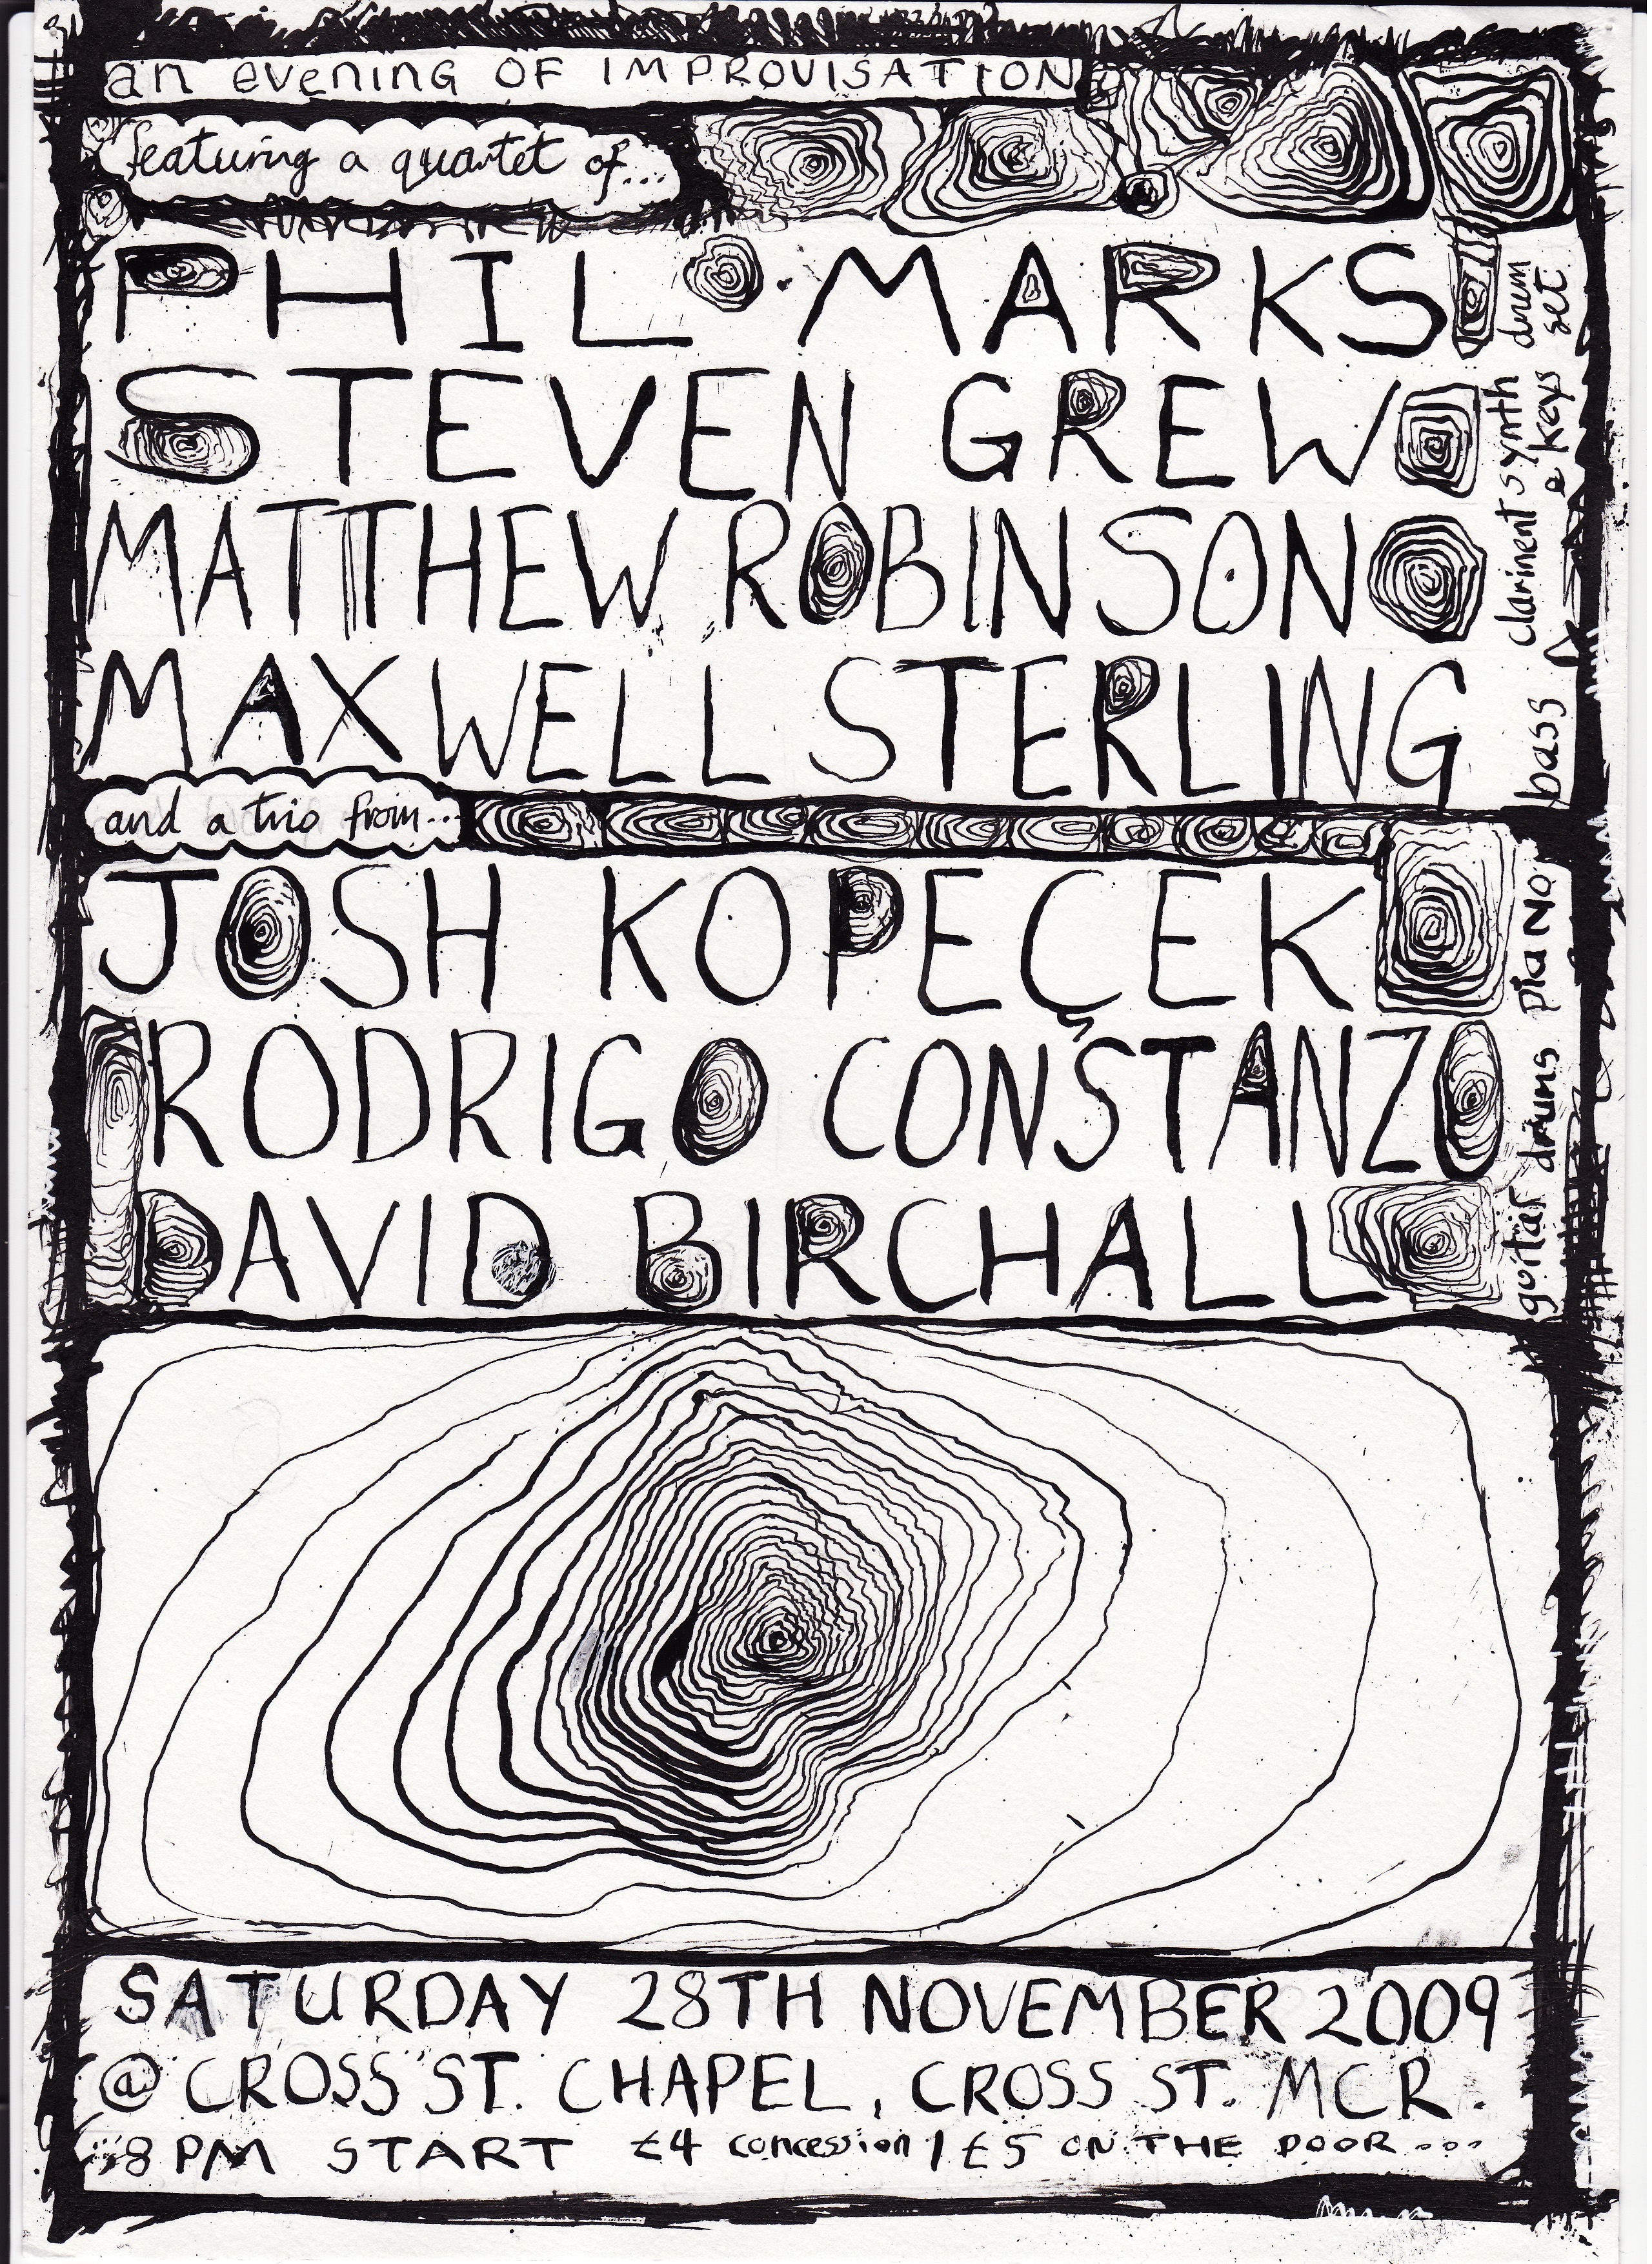 an evening OF IMPROVISATION
featuring a quartet of...
PHIL MARKS
drum set
STEVEN GREW
synth & keys
MATTHEW ROBINSON
clarinent
MAXWELL STERLING
bass
and a trio from...
JOSH KOPEÇEK
piaNo
RODRIGO CONSTANZO
drums
DAVID BIRCHALL
guitar
SATURDAY 28TH NOVEMBER 2009
@ CROSS ST. CHAPEL, CROSS ST. MCR.
8PM START £4 concession / £5 ON THE DOOR...